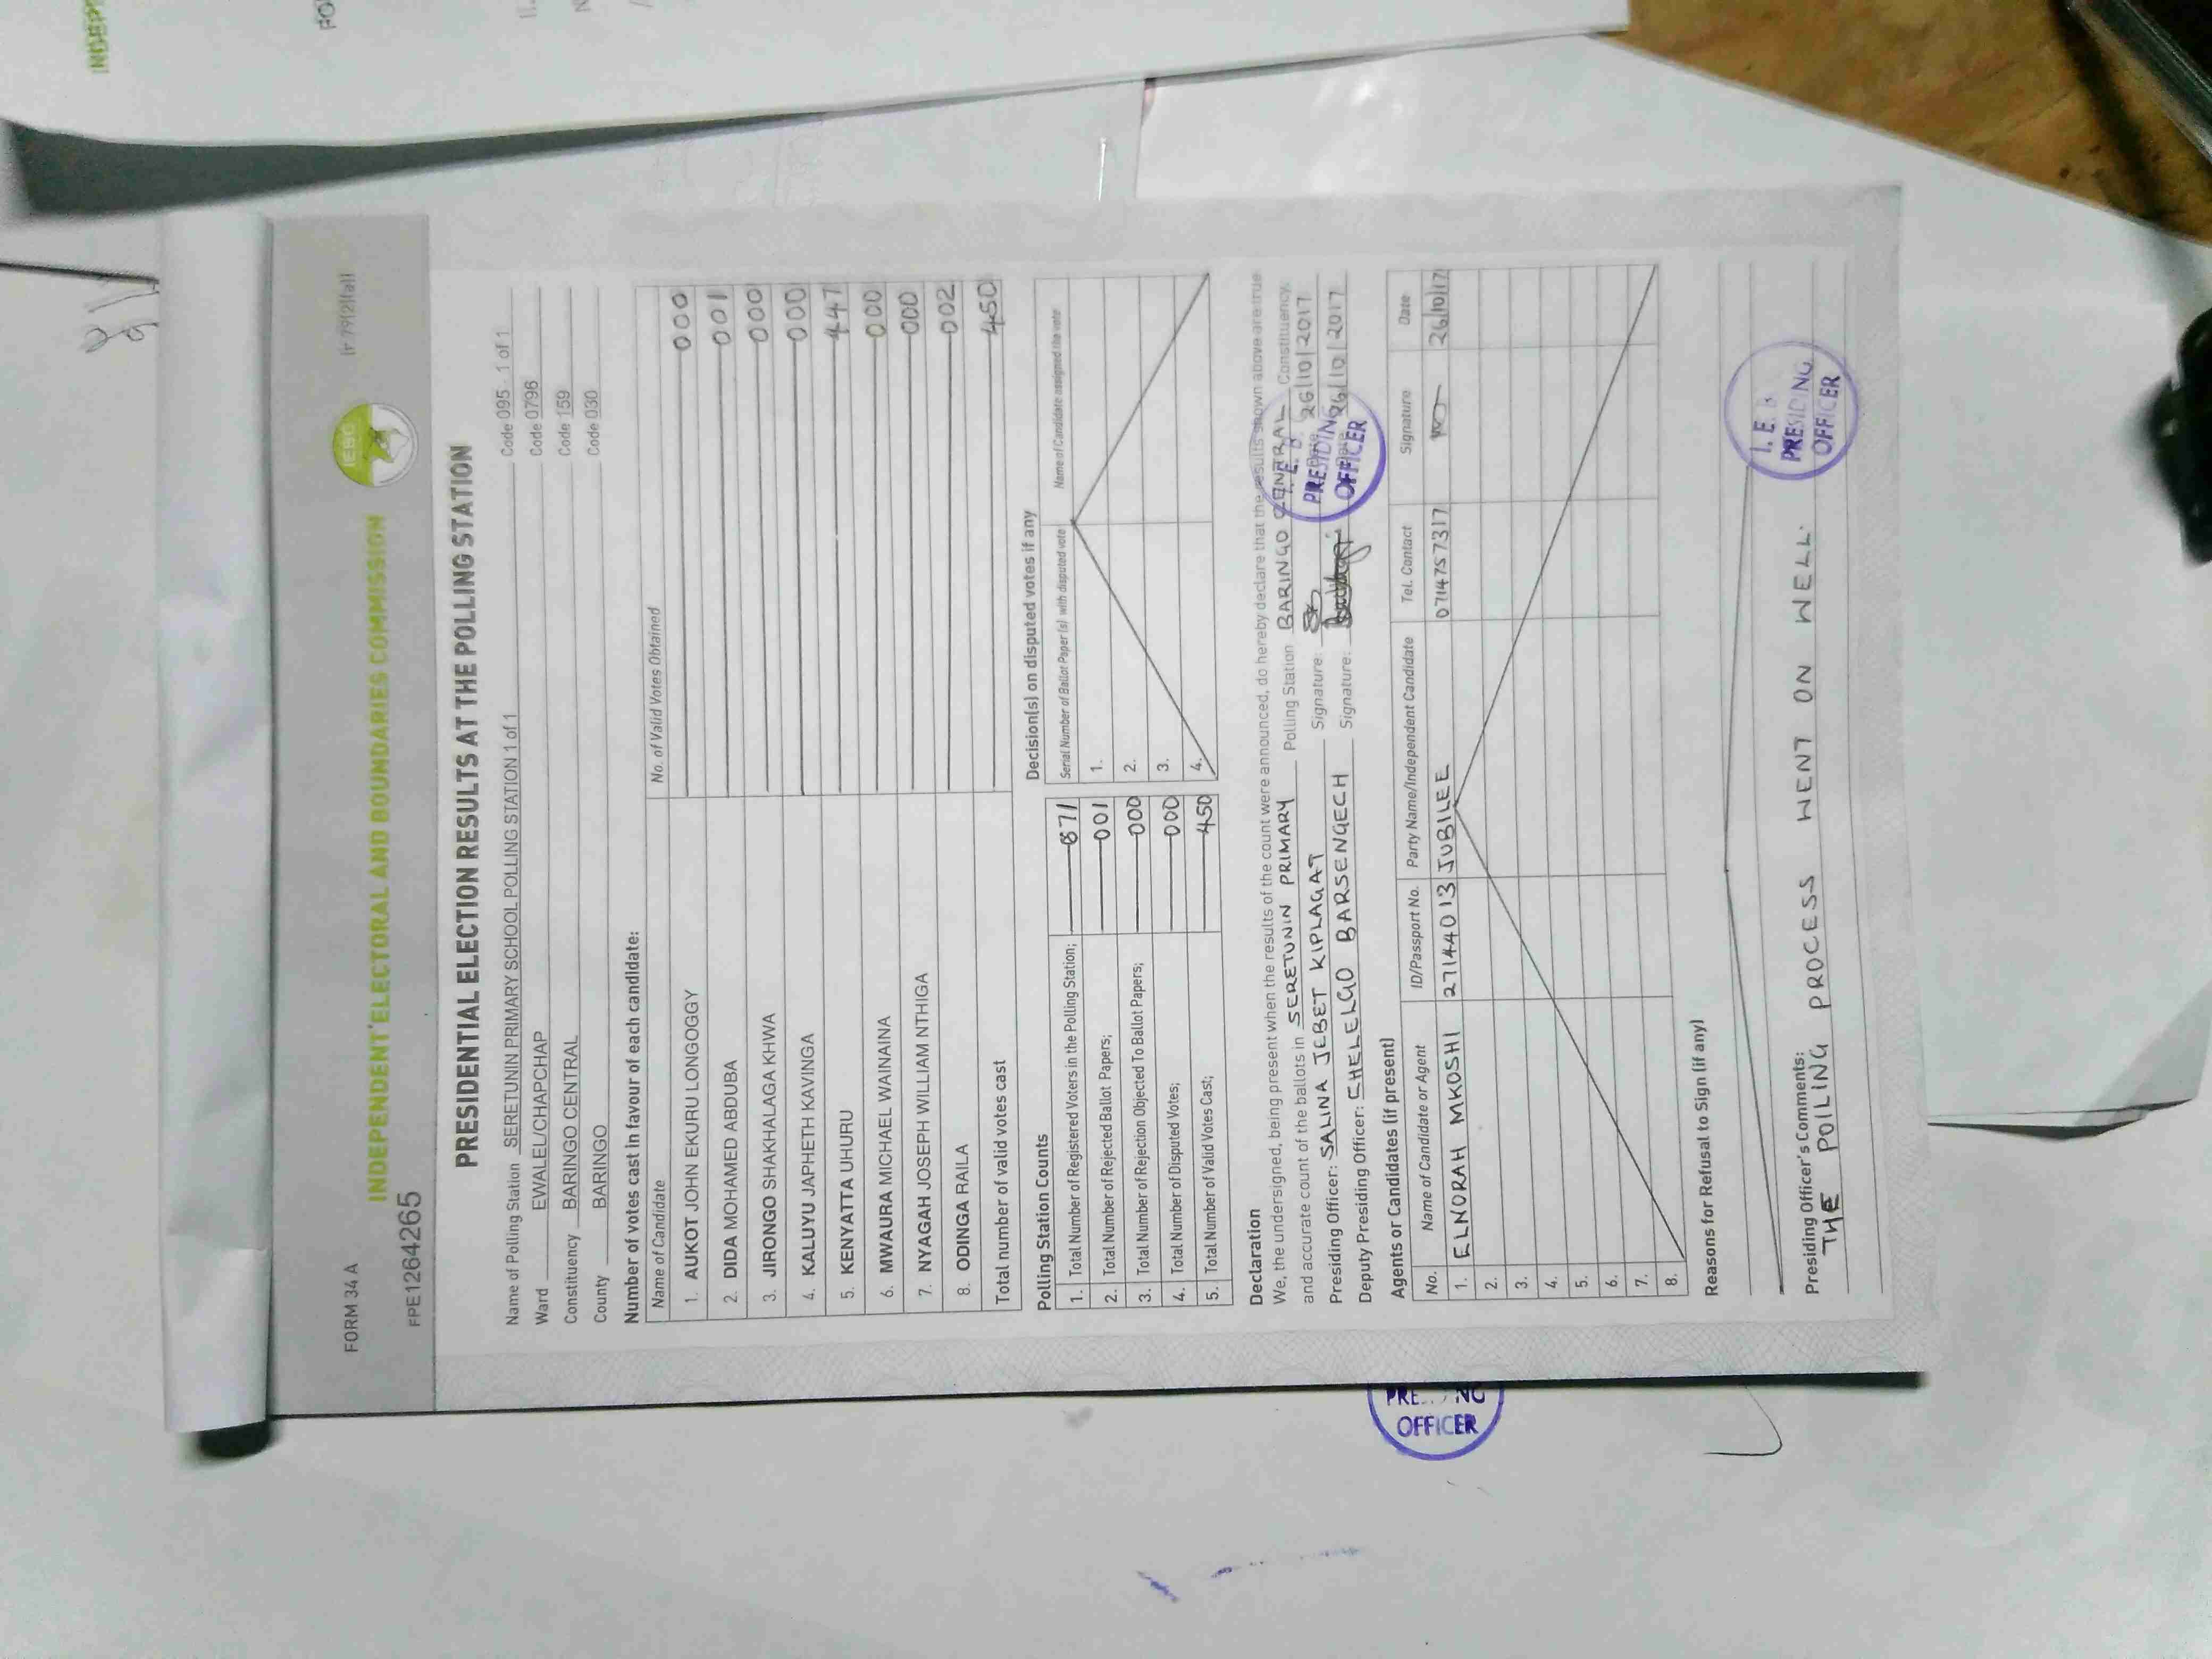 FORM 34 A
(r 79(2)(a))
IEBC
INDEPENDENT ELECTORAL AND BOUNDARIES COMMISSION
FPE1264265
PRESIDENTIAL ELECTION RESULTS AT THE POLLING STATION
Name of Polling Station SERETUNIN PRIMARY SCHOOL POLLING STATION 1 of 1 Code 095 1 of 1
Ward EWALEL/CHAPCHAP Code 0796
Constituency BARINGO CENTRAL Code 159
County BARINGO Code 030
Number of votes cast in favour of each candidate:
Name of Candidate No. of Valid Votes Obtained
1. AUKOT JOHN EKURU LONGOGGY 000
2. DIDA MOHAMED ABDUBA 001
3. JIRONGO SHAKHALAGA KHWA 000
4. KALUYU JAPHETH KAVINGA 000
5. KENYATTA UHURU 447
6. MWAURA MICHAEL WAINAINA 000
7. NYAGAH JOSEPH WILLIAM NTHIGA 000
8. ODINGA RAILA 002
Total number of valid votes cast 450
Polling Station Counts
1. Total Number of Registered Voters in the Polling Station; 671
2. Total Number of Rejected Ballot Papers; 001
3. Total Number of Rejection Objected To Ballot Papers; 000
4. Total Number of Disputed Votes; 000
5. Total Number of Valid Votes Cast; 450
Decision(s) on disputed votes if any
Serial Number of Ballot Paper (s) with disputed vote Name of Candidate assigned the vote
1.
2.
3.
4.
Declaration
We, the undersigned, being present when the results of the count were announced, do hereby declare that the results shown above are true
and accurate count of the ballots in SERETUNIN PRIMARY Polling Station BARINGO CENTRAL Constituency.
Presiding Officer: SALINA JEBET KIPLAGAT Signature: Date 26/10/2017
Deputy Presiding Officer: CHELELGO BARSENGECH Signature: 26/10/2017
I. E. B.
PRESIDING
OFFICER
Agents or Candidates (if present)
No. Name of Candidate or Agent ID/Passport No. Party Name/Independent Candidate Tel. Contact Signature Date
1. ELNORAH MKOSHI 27144013 JUBILEE 0714757317 26/10/17
2.
3.
4.
5.
6.
7.
8.
Reasons for Refusal to Sign (if any)
Presiding Officer's Comments:
THE POILING PROCESS WENT ON WELL.
I. E. B.
PRESIDING
OFFICER
OFFICER